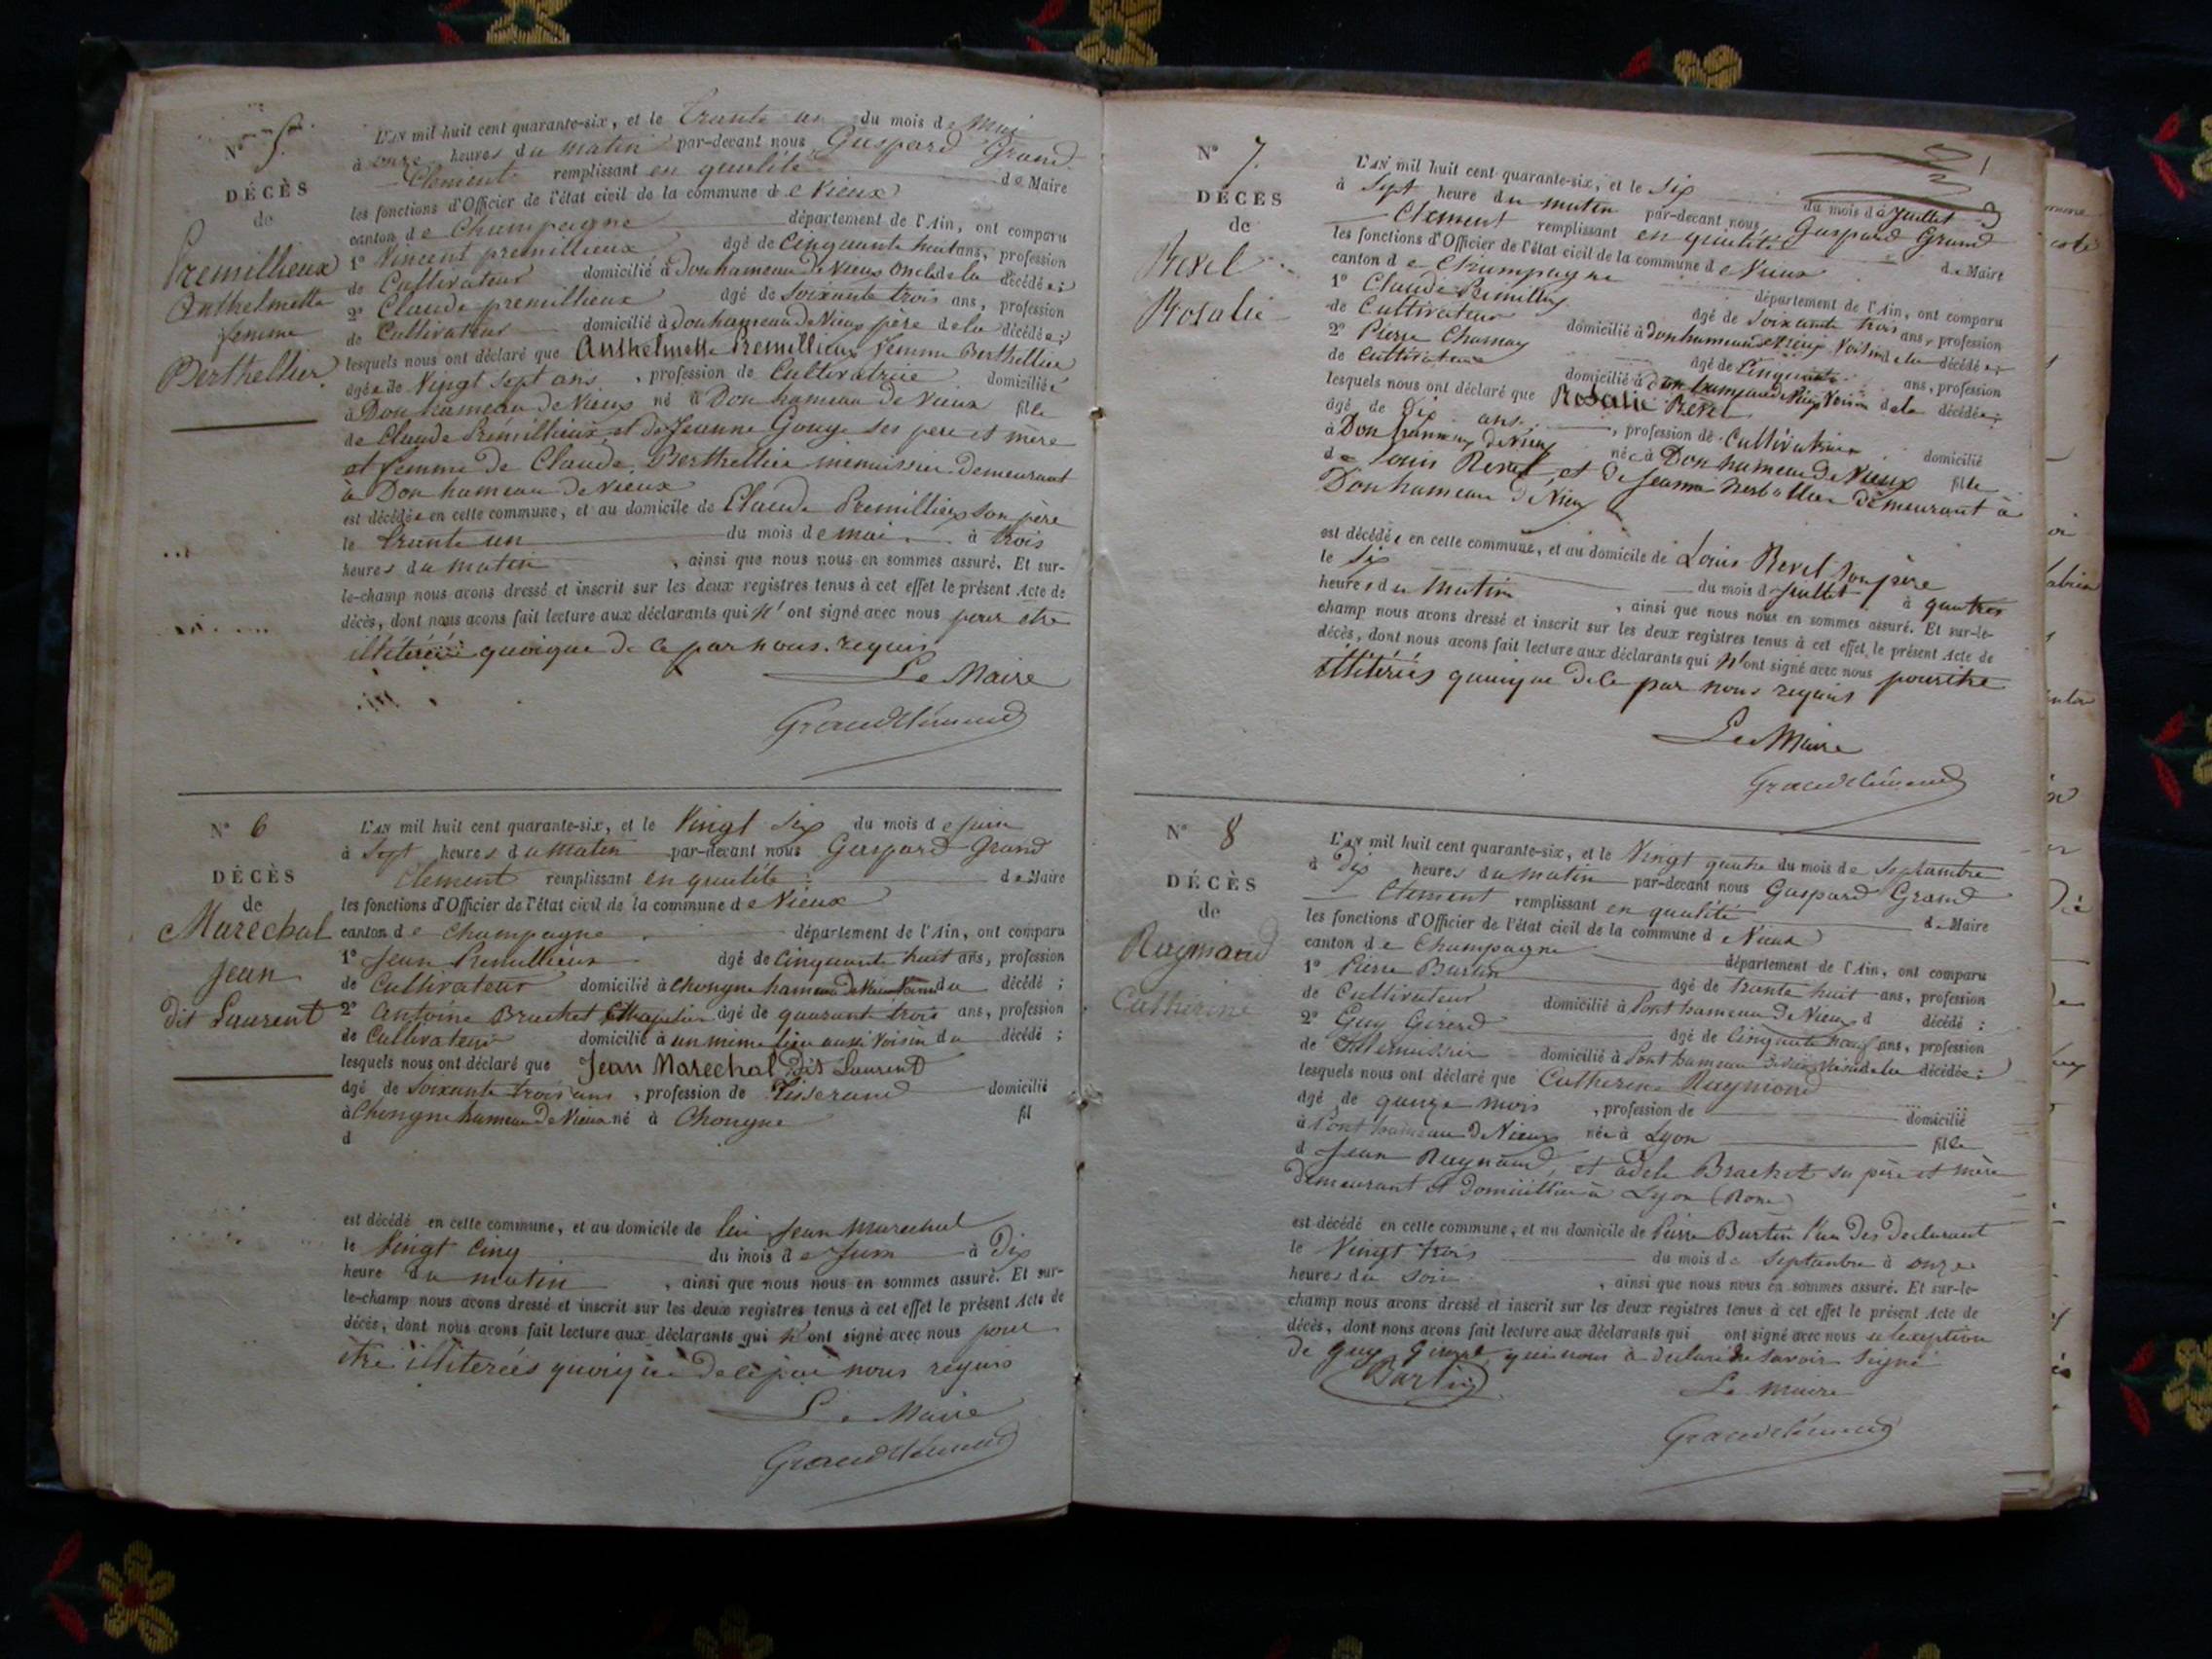 N° 5.
DÉCÈS
de
Premillieux
Anthelmette
femme
Berthellier.
L'AN mil huit cent quarante-six, et le trante un du mois de Mai
à onze heures du matin par-devant nous Gaspard Grand
Clement remplissant en qualité de Maire
les fonctions d'Officier de l'état civil de la commune de Vieux
canton de Champagne département de l'Ain, ont comparu
1° Vincent premillieux agé de Cinquante huit ans, profession
de Cultivateur domicilié à Don hameau de Vieux oncle de la décédée;
2° Claude premillieux agé de Soixante trois ans, profession
de Cultivateur domicilié à Don hameau de Vieux père de la décédée;
lesquels nous ont déclaré que Anthelmette Premillieux femme Berthellier
agée de Vingt Sept ans, profession de Cultivatrice domiciliée
à Don hameau de Vieux né à Don hameau de Vieux fille
de Claude Prémillieux et de Jeanne Gouge ses pere et mère
et femme de Claude Berthellier menuisier demeurant
à Don hameau de Vieux
est décédée en cette commune, et au domicile de Claude Premillieux son père
le trante un du mois de mai à trois
heures du matin, ainsi que nous nous en sommes assuré. Et sur-
le-champ nous avons dressé et inscrit sur les deux registres tenus à cet effet le présent Acte de
décès, dont nous avons fait lecture aux déclarants qui n'ont signé avec nous pour etre
illitérés quoique de ce par nous requis
Le Maire
Grandclément
N° 6
DÉCÈS
de
Maréchal
Jean
dit Laurent
L'AN mil huit cent quarante-six, et le Vingt Six du mois de juin
à Sept heures du matin par-devant nous Gaspard Grand
Clement remplissant en qualité de Maire
les fonctions d'Officier de l'état civil de la commune de Vieux
canton de Champagne département de l'Ain, ont comparu
1° Jean Premillieux agé de Cinquante huit ans, profession
de Cultivateur domicilié à Chongne hameau de Vieux Voisin du décédé;
2° Antoine Brachet agé de quarant trois ans, profession
de Cultivateur domicilié à un même lieu aussi Voisin du décédé;
lesquels nous ont déclaré que Jean Marechal dit Laurent
agé de Soixante trois ans, profession de Tisserand domicilié
à Chongne hameau de Vieux né à Chongne fil
d
est décédé en cette commune, et au domicile de lui Jean Marechal
le Vingt Cinq du mois de Juin à Dix
heure du matin, ainsi que nous nous en sommes assuré. Et sur-
le-champ nous avons dressé et inscrit sur les deux registres tenus à cet effet le présent Acte de
décès, dont nous avons fait lecture aux déclarants qui n'ont signé avec nous pour
etre illiterés quoique de ce par nous requis
Le Maire
Grandclément
N° 7.
DÉCÈS
de
Revel
Rosalie
L'AN mil huit cent quarante-six, et le Six du mois de Juillet
à Sept heure du matin par-devant nous Gaspard Grand
Clement remplissant en qualité de Maire
les fonctions d'Officier de l'état civil de la commune de Vieux
canton de Champagne département de l'Ain, ont comparu
1° Claude Prémillieux agé de Soixante trois ans, profession
de Cultivateur domicilié à Don hameau de Vieux Voisin de la décédée;
2° Pierre Charnay agé de Cinquante ans, profession
de Cultivateur domicilié à Don hameau de Vieux Voisin de la décédée;
lesquels nous ont déclaré que Rosalie Revel
agé de Dix ans, profession de Cultivatrice domicilié
à Don hameau de Vieux née à Don hameau de Vieux fille
de Louis Revel, et de Jeanne demeurant à
Don hameau de Vieux
est décédée en cette commune, et au domicile de Louis Revel son père
le Six du mois de Juillet à quatres
heures du matin, ainsi que nous nous en sommes assuré. Et sur-le-
champ nous avons dressé et inscrit sur les deux registres tenus à cet effet le présent Acte de
décès, dont nous avons fait lecture aux déclarants qui n'ont signé avec nous pour etre
illitérés quoique de ce par nous requis
Le Maire
Grandclément
N° 8
DÉCÈS
de
Raymond
Catherine
L'AN mil huit cent quarante-six, et le Vingt quatre du mois de Septambre
à Dix heures du matin par-devant nous Gaspard Grand
Clement remplissant en qualité de Maire
les fonctions d'Officier de l'état civil de la commune de Vieux
canton de Champagne département de l'Ain, ont comparu
1° Pierre Burtin agé de trante huit ans, profession
de Cultivateur domicilié à Pont hameau de Vieux d décédé;
2° Guy Girerd agé de Cinquante neuf ans, profession
de Menuisier domicilié à Pont hameau de Vieux Voisin de la décédée;
lesquels nous ont déclaré que Catherine Raymond
agé de quinze mois, profession de domicilié
à Pont hameau de Vieux née à Lyon fille
d Jean Raymond, et adele Brachet sa père et mère
demeurant et domicilliée à Lyon (Rone)
est décédé en cette commune, et au domicile de Pierre Burtin l'un Des Declarant
le Vingt trois du mois de Septambre à onze
heures du soir, ainsi que nous nous en sommes assuré. Et sur-le-
champ nous avons dressé et inscrit sur les deux registres tenus à cet effet le présent Acte de
décès, dont nous avons fait lecture aux déclarants qui ont signé avec nous a lexeption
de guy Girerd qui nous a declaré ne savoir signé
Burtin Le maire
Grandclément